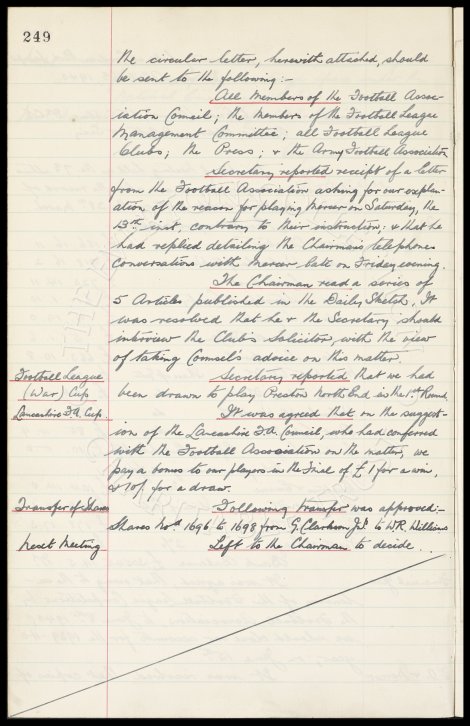 249
The circular letter, herewith attached, should
be sent to the following:-
All Members of the Football Assoc-
iation Council; the Members of the Football League
Management Committee; all Football League
Clubs; the Press; & the Army Football Association
Secretary reported receipt of a letter
from the Football Association asking for our explan-
ation of the reason for playing Mercer on Saturday, the
13th inst, contrary to their instruction; & that he
had replied detailing the Chairman's telephone
conversations with Mercer late on Friday evening.
The Chairman read a series of
5 Articles published in the Daily Sketch, It
was resolved that he & the Secretary should
interview the Club's Solicitor, with the view
of taking Counsel's advice on this matter.
Football League
(War) Cup
Secretary reported that we had
been drawn to play Preston North End in the 1st Round
Lancashire F.A. Cup.
It was agreed that on the suggest-
ion of the Lancashire F.A. Council, who had conferred
with the Football Association on the matter, we
pay a bonus to our players in the Final of £1 for a win,
& 10/- for a draw.
Transfer of Shares
Following transfer was approved:-
Shares Nos. 1696 to 1698 from G. Clarkson to W.R. Williams
Next Meeting
Left to the Chairman to decide...